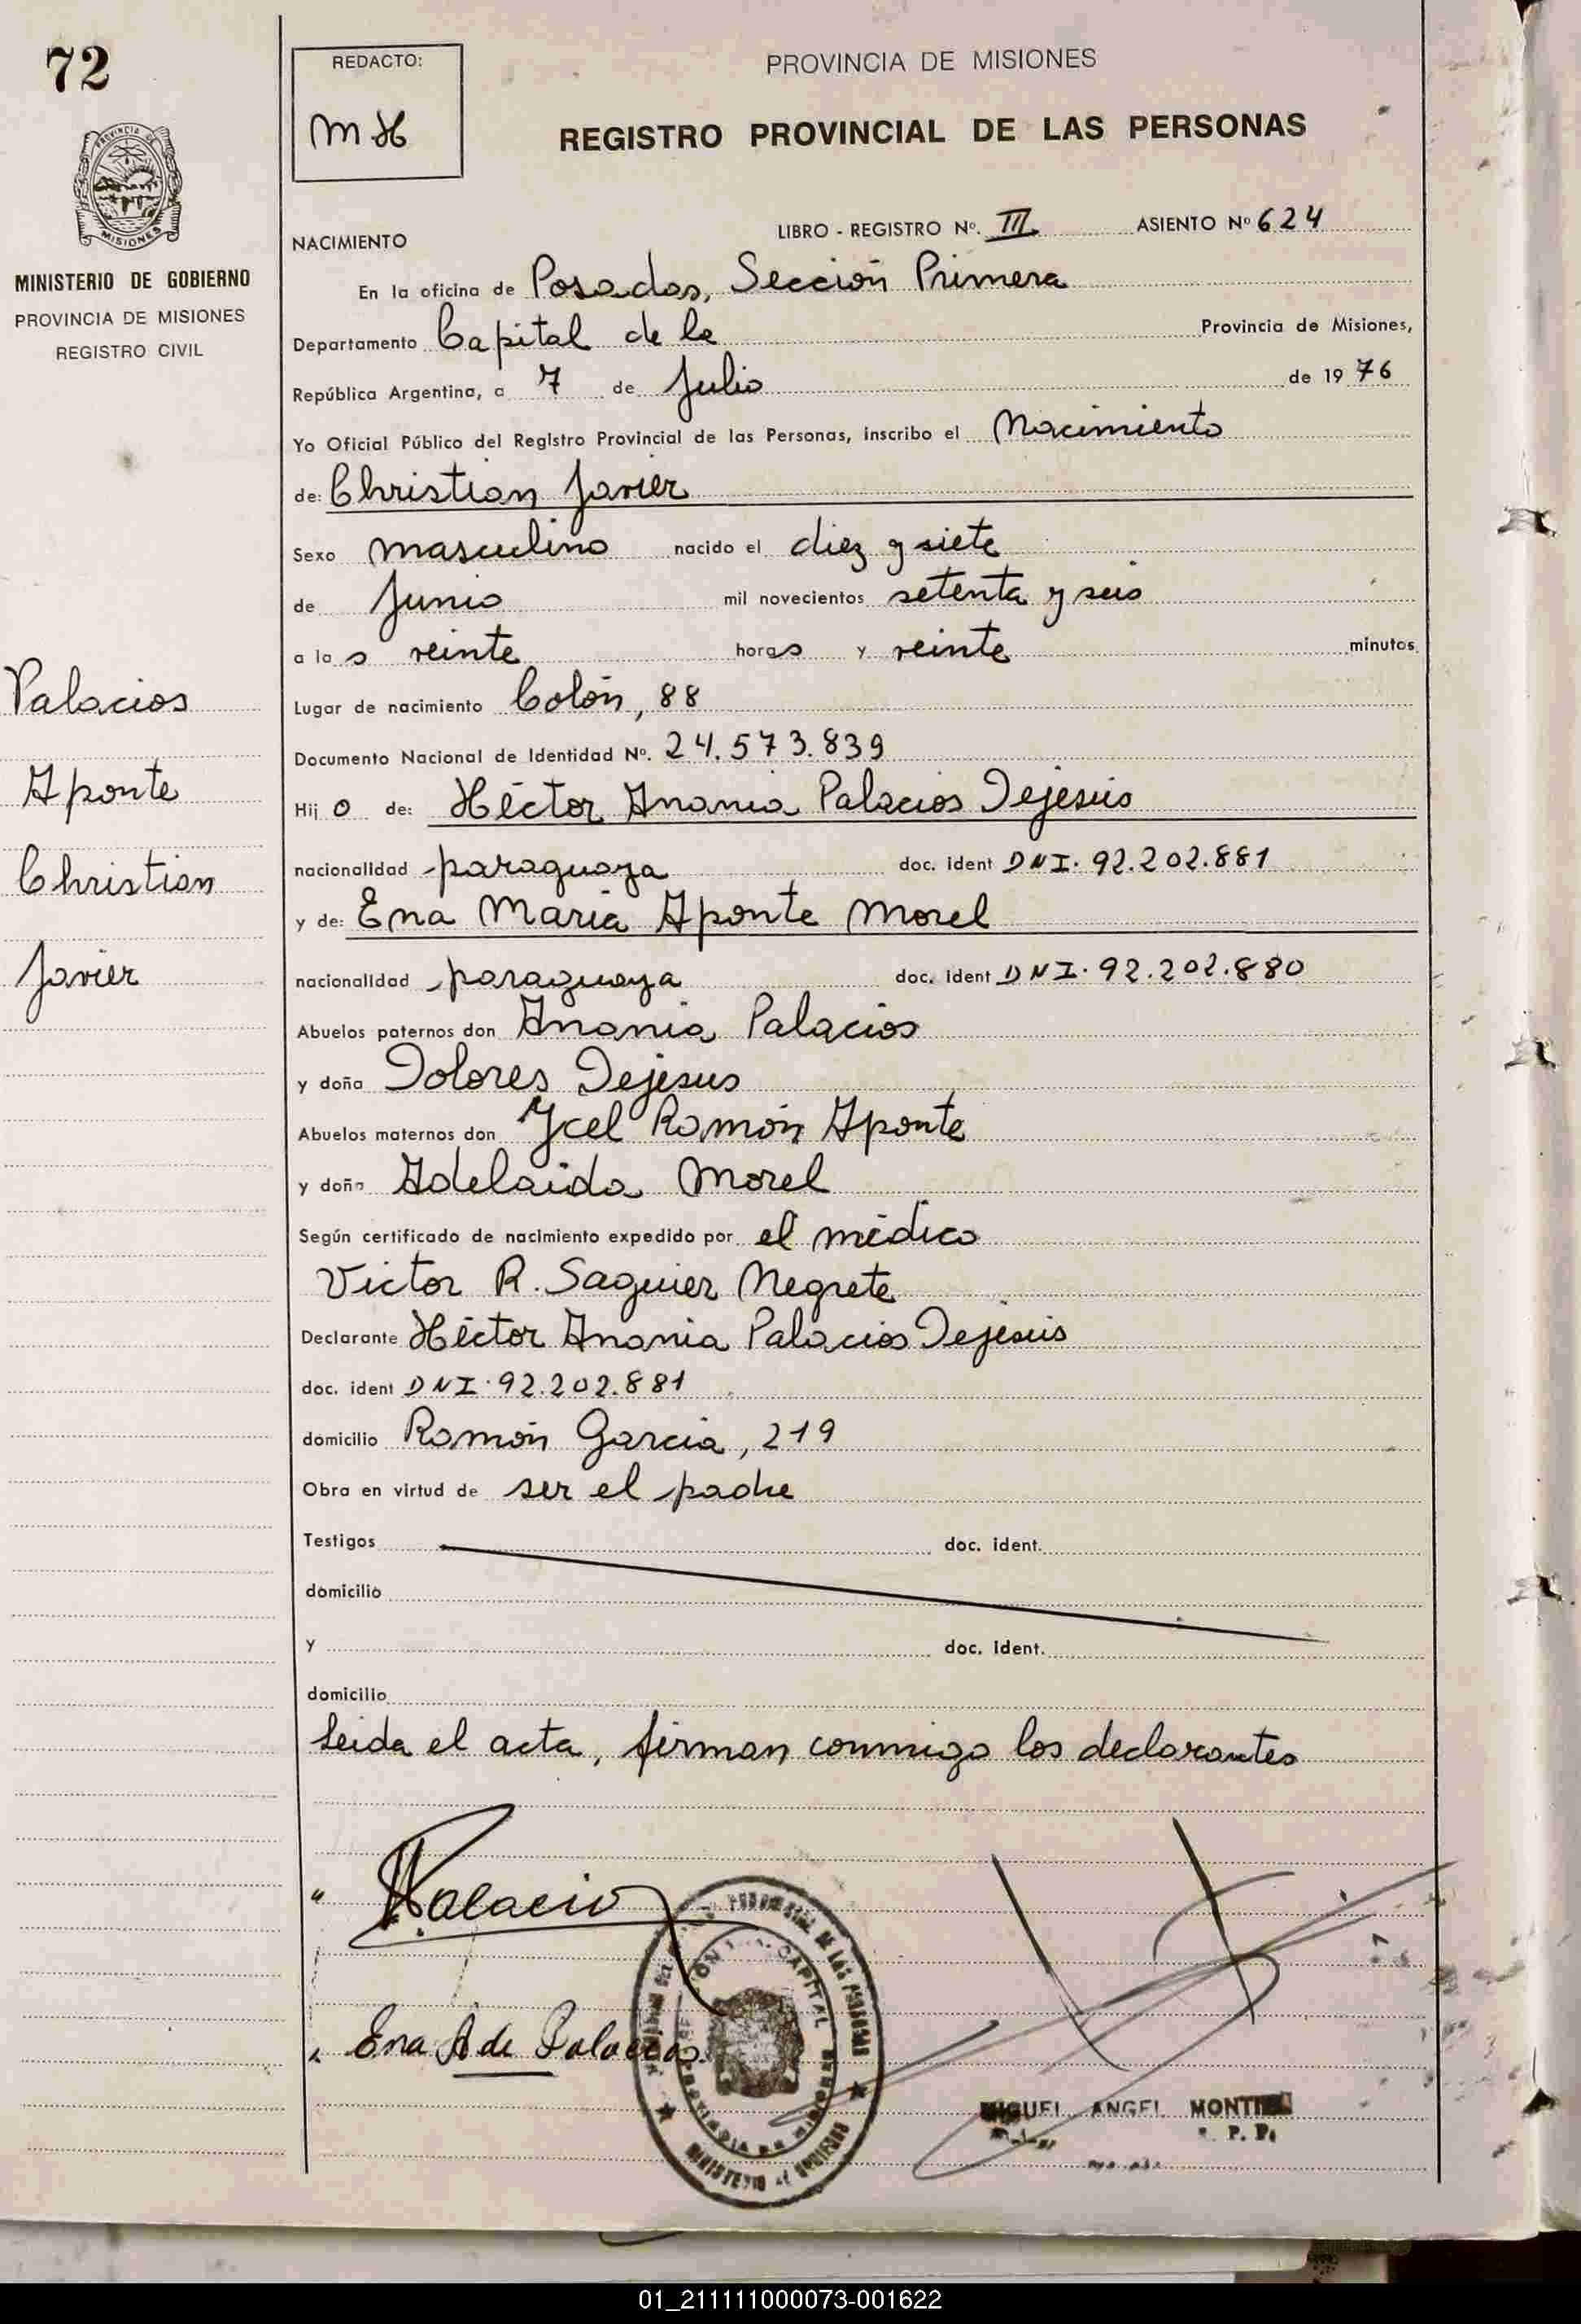 72
REDACTO:
MH
PROVINCIA DE MISIONES
REGISTRO PROVINCIAL DE LAS PERSONAS
MISIONES
MINISTERIO DE GOBIERNO
PROVINCIA DE MISIONES
REGISTRO CIVIL
NACIMIENTO
LIBRO - REGISTRO Nº. III ASIENTO Nº 624
En la oficina de Posadas, Sección Primera
Departamento Capital de la Provincia de Misiones,
República Argentina, a 7 de Julio de 1976
Yo Oficial Público del Registro Provincial de las Personas, inscribo el Nacimiento
de: Christian Javier
Sexo masculino nacido el diez y siete
de Junio mil novecientos setenta y seis
a las veinte horas y veinte minutos
Lugar de nacimiento Colón, 88
Documento Nacional de Identidad Nº. 24.573.839
Hijo de: Héctor Anania Palacios Dejesús
nacionalidad paraguaya doc. ident DNI. 92.202.881
y de: Ena María Aponte Morel
nacionalidad paraguaya doc. ident DNI. 92.202.880
Abuelos paternos don Anania Palacios
y doña Dolores Dejesus
Abuelos maternos don Ycel Ramón Aponte
y doña Adelaida Morel
Según certificado de nacimiento expedido por el médico
Victor R. Saguier Negrete
Declarante Héctor Anania Palacios Dejesús
doc. ident DNI. 92.202.881
domicilio Ramón García, 219
Obra en virtud de ser el padre
Testigos doc. ident.
domicilio
y doc. ident.
domicilio
Leida el acta, firman conmigo los declarantes
Palacios
Aponte
Christian
Javier
Palacio
Ena A de Palacios
CAPITAL
MIGUEL ANGEL MONTIEL
01_211111000073-001622